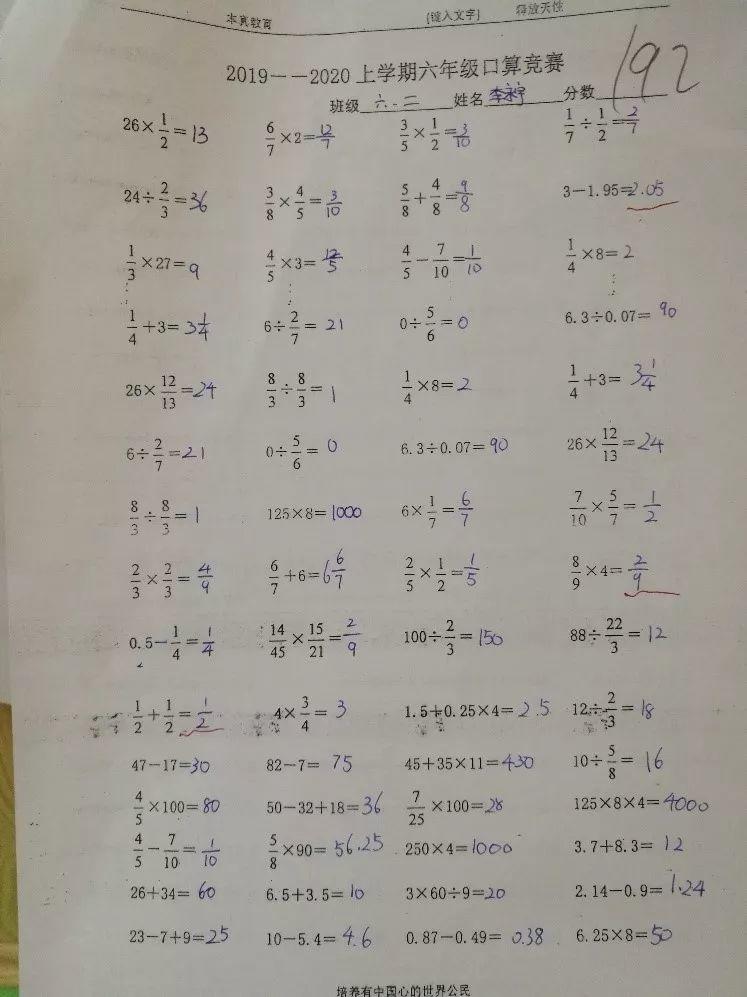 本真教育 [键入文字] 释放天性
2019——2020上学期六年级口算竞赛 192
班级 六.二 姓名 分数
26×1/2=13 6/7×2=12/7 3/5×1/2=3/10 1/7÷1/2=2/7
24÷2/3=36 3/8×4/5=3/10 5/8+4/8=9/8 3-1.95=2.05
1/3×27=9 4/5×3=12/5 4/5-7/10=1/10 1/4×8=2
1/4+3=3 1/4 6÷2/7=21 0÷5/6=0 6.3÷0.07=90
26×12/13=24 8/3÷8/3=1 1/4×8=2 1/4+3=3 1/4
6÷2/7=21 0÷5/6=0 6.3÷0.07=90 26×12/13=24
8/3÷8/3=1 125×8=1000 6×1/7=6/7 7/10×5/7=1/2
2/3×2/3=4/9 6/7+6=6 6/7 2/5×1/2=1/5 8/9×4=2/9
0.5-1/4=1/4 14/45×15/21=2/9 100÷2/3=150 88÷22/3=12
1/2+1/2=1/2 4×3/4=3 1.5+0.25×4=2.5 12÷2/3=18
47-17=30 82-7=75 45+35×11=430 10÷5/8=16
4/5×100=80 50-32+18=36 7/25×100=28 125×8×4=4000
4/5-7/10=1/10 5/8×90=56.25 250×4=1000 3.7+8.3=12
26+34=60 6.5+3.5=10 3×60÷9=20 2.14-0.9=1.24
23-7+9=25 10-5.4=4.6 0.87-0.49=0.38 6.25×8=50
培养有中国心的世界公民